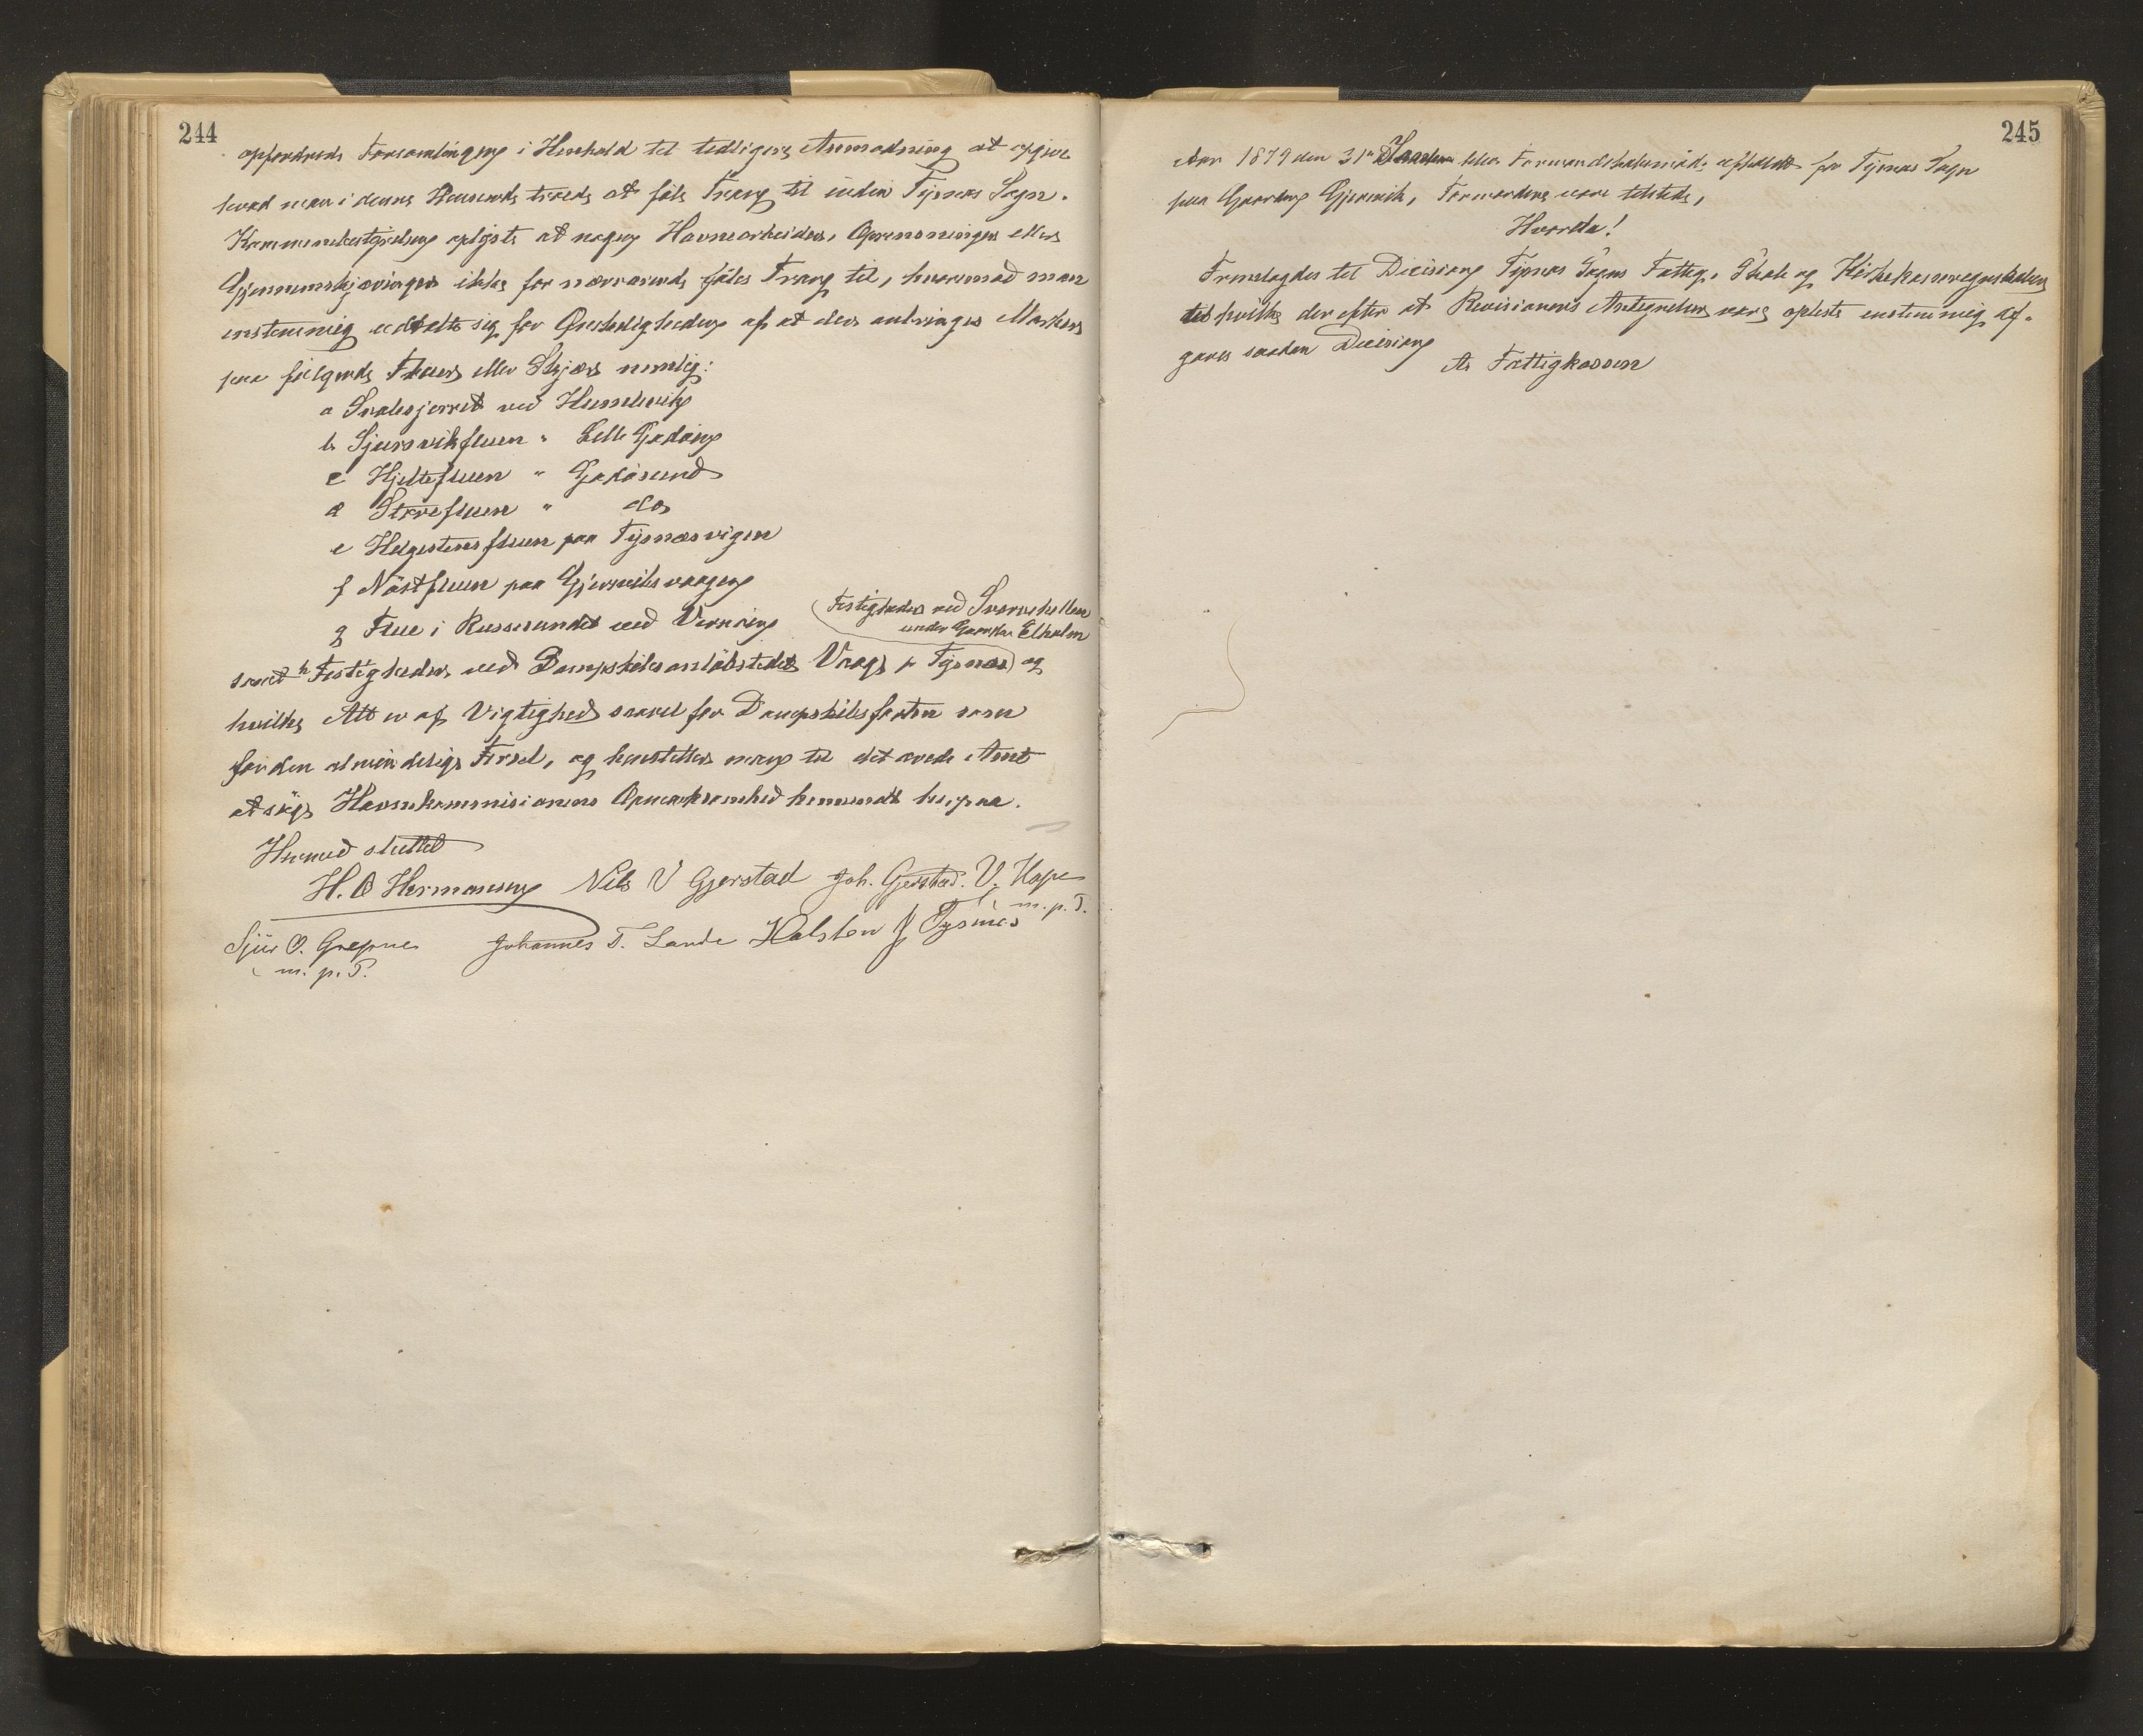 244
opfordrede Forsamlingen i Henhold til tidligere Anmodning at opgive
hvad man i denne Henseende troede at føle Trang til inden Tysnæs Sogn.
Kommunebestyrelsen oplyste at nogen Havnearbeider, Oprensninger eller
Gjennemskjæringer ikke for nærværende føles Trang til, hvoremod man
enstemmig udtalte sig for Ønskeligheden af at der anbringes Mærker
paa følgende Fluer eller Skjær nemlig:
a Svalesjerret ved Hummelvik
b Sjursvikfluen " Lille Godøen
c Hjeltefluen " Godøsund
d Størefluen " do
e Helgestensfluen paa Tysnæsvigen
f Nöstfluen paa Gjersviksvaagen
g Flue i Russesundet ved Vernøen
(Festigheder ved Svarvehellen
under Gaarden Elholm
samt h Festigheder ved Dampskibsanløbstedet Vaage p Tysnæs) og
hvilke Alt er af Vigtighed saavel for Dampskibsfarten som
for den almindelige Færsel, og henstilles man til det ærede Amt
at søge Havnekommisionens Opmærksomhed henvendt herpaa.
Hermed sluttet
H. O Hermansen Nils V Gjerstad Joh. Gjerstad. V. Hope
m. p. P.
Sjur O. Grepne Johannes T. Lande Halsten J Tysnæs
m. p. P.
245
Aar 1879 den 31te blev Formandskabsmøde afholdt for Tysnæs Sogn
paa Gaarden Gjersvik, Formændene vare tilstede,
Hvorda!
Fremlagdes til Decision Tysnæs Sogns Fattig, Skole og Kirkekasseregnskaber
til hvilke der efter at Revisionens Antegnelser vare oplæste enstemmig af-
gaves saadan Decision
A, Fattigkassen